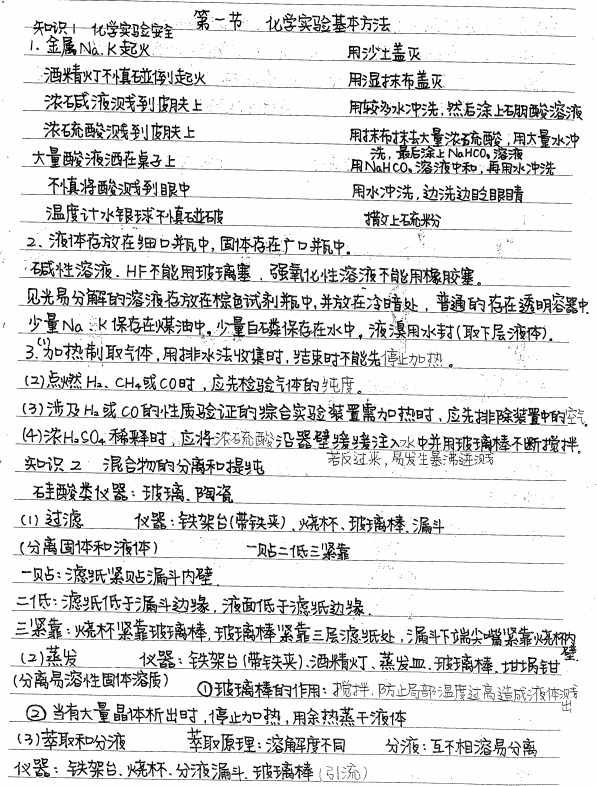 第一节 化学实验基本方法
知识1 化学实验安全
1. 金属Na、K起火 用沙土盖灭
酒精灯不慎碰倒起火 用湿抹布盖灭
浓碱液溅到皮肤上 用较多水冲洗,然后涂上硼酸溶液
浓硫酸溅到皮肤上 用抹布抹去大量浓硫酸,用大量水冲
洗,最后涂上NaHCO₃溶液
大量酸液洒在桌子上 用NaHCO₃溶液中和,再用水冲洗
不慎将酸溅到眼中 用水冲洗,边洗边眨眼睛
温度计水银球不慎碰破 撒上硫粉
2、液体存放在细口瓶中,固体存在广口瓶中。
碱性溶液、HF不能用玻璃塞、强氧化性溶液不能用橡胶塞。
见光易分解的溶液存放在棕色试剂瓶中,并放在冷暗处,普通的存在透明容器中
少量Na、K保存在煤油中。少量白磷保存在水中。液溴用水封(取下层液体).
3.(1)加热制取气体,用排水法收集时,结束时不能先停止加热。
(2)点燃H₂、CH₄或CO时,应先检验气体的纯度。
(3)涉及H₂或CO的性质验证的综合实验装置需加热时,应先排除装置中的空气
(4)浓H₂SO₄稀释时,应将浓硫酸沿器壁缓缓注入水中并用玻璃棒不断搅拌.
若反过来,易发生暴沸迸溅
知识2 混合物的分离和提纯
硅酸类仪器:玻璃、陶瓷
(1)过滤 仪器:铁架台(带铁夹)、烧杯、玻璃棒、漏斗
(分离固体和液体) 一贴二低三紧靠
一贴:滤纸紧贴漏斗内壁.
二低:滤纸低于漏斗边缘,液面低于滤纸边缘.
三紧靠:烧杯紧靠玻璃棒、玻璃棒紧靠三层滤纸处,漏斗下端尖嘴紧靠烧杯内
壁.
(2)蒸发 仪器:铁架台(带铁夹)、酒精灯、蒸发皿、玻璃棒、坩埚钳
(分离易溶性固体溶质) ①玻璃棒的作用:搅拌,防止局部温度过高造成液体溅
出
②当有大量晶体析出时,停止加热,用余热蒸干液体
(3)萃取和分液 萃取原理:溶解度不同 分液:互不相溶易分离
仪器:铁架台、烧杯、分液漏斗、玻璃棒(引流)